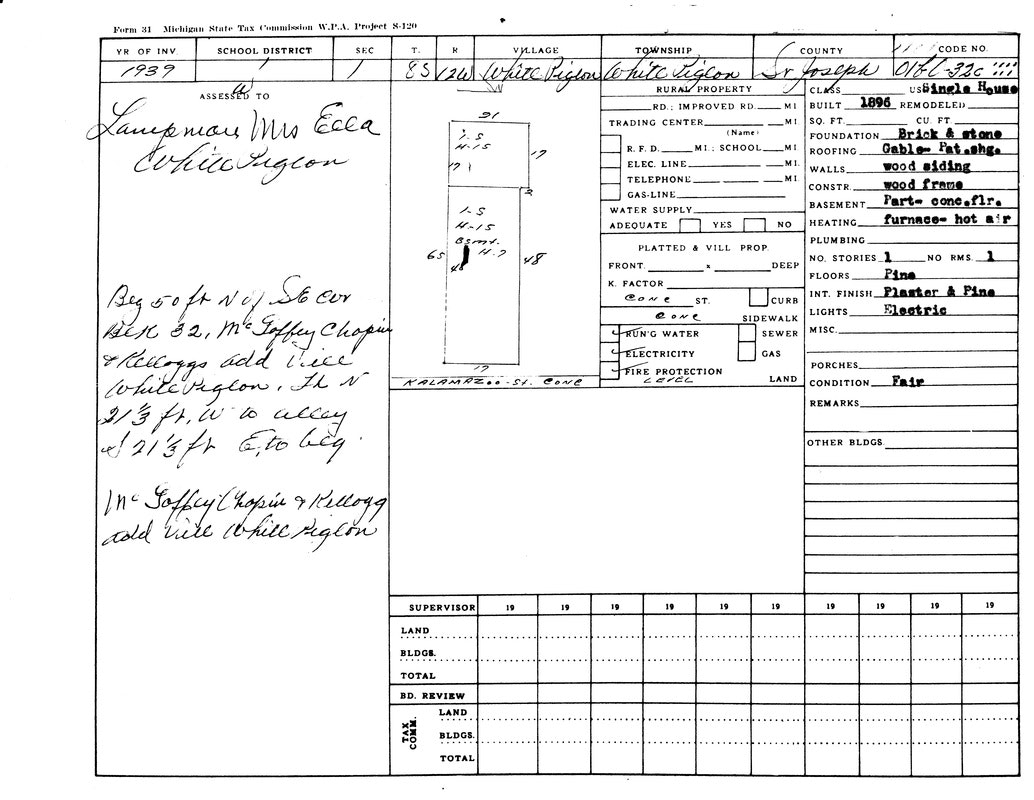 Form 31 Michigan State Tax Commission W.P.A. Project S-120
YR OF INV. SCHOOL DISTRICT SEC T. R VILLAGE TOWNSHIP COUNTY CODE NO.
1939 1 1 8S 12W White Pigeon White Pigeon St Joseph
ASSESSED TO
Lampman Mrs Ella
White Pigeon
Beg 50 ft N of SE cor
Blk 32, McGoffey Chapin
& Kelloggs add Vill
White Pigeon, Th N
21⅓ ft, W to alley
S 21⅓ ft E, to beg.
McGoffey Chapin & Kellogg
add Vill White Pigeon
21
1-S
H-15
17 17
2
1-S
H-15
Bsmt.
H.7
65 48 48
17
KALAMAZOO-St. CONC
RURAL PROPERTY
RD.; IMPROVED RD. MI
TRADING CENTER
(Name)
R. F. D. MI.; SCHOOL MI
ELEC. LINE MI.
TELEPHONE MI
GAS-LINE
WATER SUPPLY
ADEQUATE YES NO
PLATTED & VILL PROP.
FRONT. x DEEP
K. FACTOR
CONC ST. CURB
CONC SIDEWALK
RUN'G WATER SEWER
ELECTRICITY GAS
FIRE PROTECTION
LEVEL LAND
CLASS USE Single House
BUILT 1896 REMODELED
SQ. FT. CU. FT.
FOUNDATION Brick & stone
ROOFING Gable- Pat.shg.
WALLS wood siding
CONSTR. wood frame
BASEMENT Part- conc.flr.
HEATING furnace- hot air
PLUMBING
NO. STORIES 1 NO RMS. 1
FLOORS Pine
INT. FINISH Plaster & Pine
LIGHTS Electric
MISC.
PORCHES
CONDITION Fair
REMARKS
OTHER BLDGS.
SUPERVISOR 19 19 19 19 19 19 19 19 19 19
LAND
BLDGS.
TOTAL
BD. REVIEW
TAX COMM.
LAND
BLDGS.
TOTAL